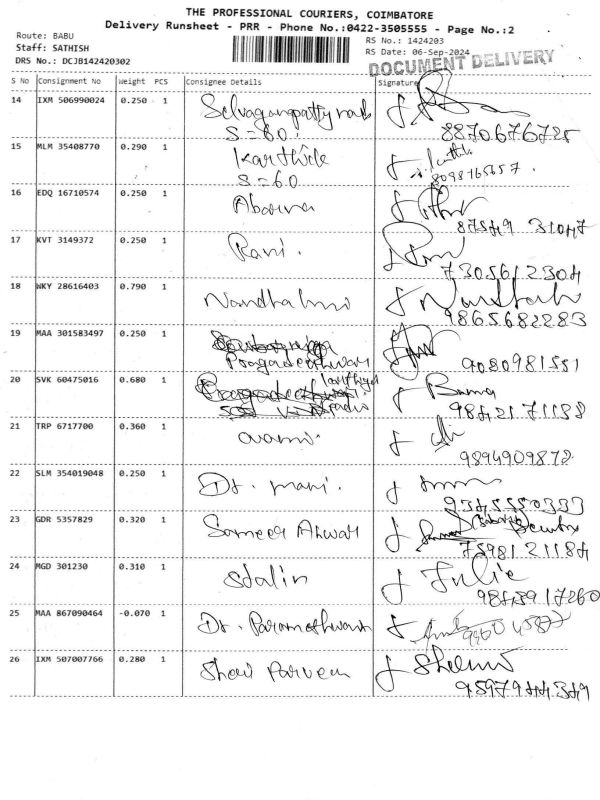 THE PROFESSIONAL COURIERS, COIMBATORE
Delivery Runsheet - PRR - Phone No.:0422-3505555 - Page No.:2
Route: BABU
Staff: SATHISH
DRS No.: DCJB142420302
RS No.: 1424203
RS Date: 06-Sep-2024
DOCUMENT DELIVERY
S No Consignment No Weight PCS Consignee Details Signature
14 IXM 506990024 0.250 1
S=60. 8870676725
15 MLM 35408770 0.290 1 Karthik
S=60 8098765657.
16 EDQ 16710574 0.250 1 Abarna
87549 31047
17 KVT 3149372 0.250 1 Rani.
7305612304
18 WKY 28616403 0.790 1 Nandhalini
9865682283
19 MAA 301583497 0.250 1
Pragadeeshwar 9080981551
20 SVK 60475016 0.680 1 Bama
9842171188
21 TRP 6717700 0.360 1
9894909872
22 SLM 354019048 0.250 1 Dr. mani.
9345550333
23 GDR 5357829 0.320 1 Sameer
7598121184
24 MGD 301230 0.310 1 Stalin Julie
9843917260
25 MAA 867090464 -0.070 1 Dr. Parameshwaran
26 IXM 507007766 0.280 1 Parveen
9597944349